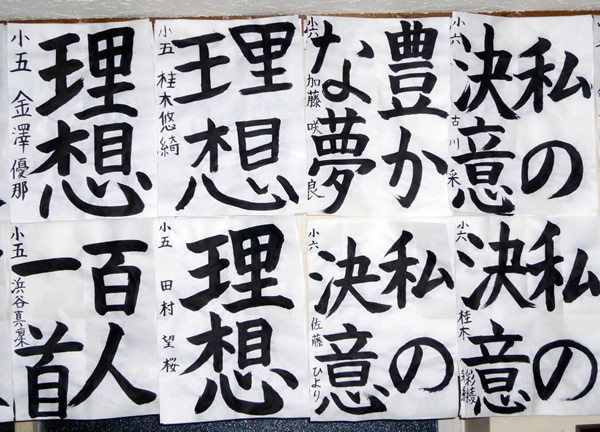 理想
小五 金澤優那
理想
小五 桂木悠綺
豊か
な夢
小六 加藤咲良
私の
決意
小六 古川采
百人
一首
小五 浜谷真
理想
小五 田村望桜
私の
決意
小六 佐藤ひより
私の
決意
小六 桂木